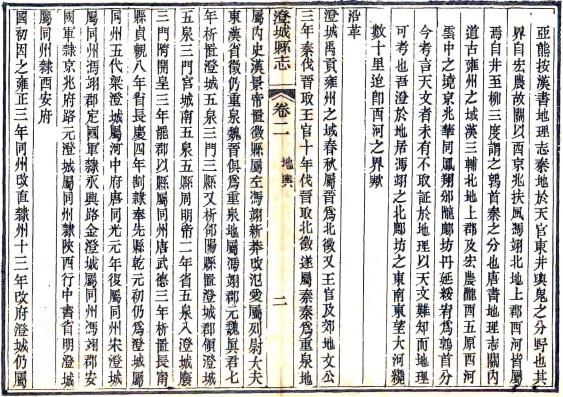 亞能按漢書地理志秦地於天官東井輿鬼之分野也其
界自宏農故關以西京兆扶風馮翊北地上郡西河皆屬
焉自井至柳三度謂之鶉首秦之分也唐書地理志關內
道古雍州之域漢三輔北地上郡及宏農隴西五原西河
雲中之境京兆華同鳳翔邠隴鄜坊丹延綏宥爲鶉首分
今考言天文者未有不取証於地理以天文難知而地理
可考也吾澄於地居馮翊之北鄜坊之東南東望大河纔
數十里迨卽西河之界歟
沿革
澄城禹貢雍州之域春秋屬晉爲北徵又王官及郊地文公
三年秦伐晉取王官十年伐晉取北徵遂屬秦秦爲重泉地
澄城縣志 卷二 地輿 二
屬內史漢景帝置徵縣屬左馮翊新莽改汜愛屬列尉大夫
東漢省徵仍重泉魏晉俱爲重泉地屬馮翊郡元魏眞君七
年析置澄城五泉三門三縣又析郃陽縣置澄城郡領澄城
五泉三門宮城南五泉五縣周明帝二年省五泉入澄城廢
三門隋開皇三年罷郡以縣屬同州唐武德三年析置長甯
縣貞觀八年省長慶四年割隸奉先縣乾元初仍爲澄城屬
同州五代梁澄城屬河中府唐同光元年復屬同州宋澄城
屬同州馮翊郡定國軍隸永興路金澄城屬同州馮翊郡安
國軍隸京兆府路元澄城屬同州隸陝西行中書省明澄城
屬同州隸西安府
國初因之雍正三年同州改直隸州十三年改府澄城仍屬